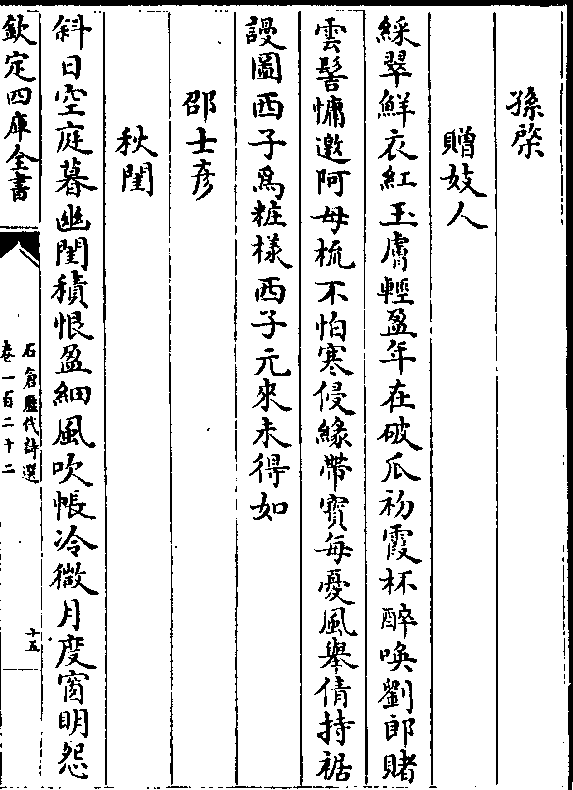 孫棨
贈妓人
綵翠鮮衣紅玉膚輕盈年在破瓜初霞杯醉喚劉郎賭
雲髻慵邀阿母梳不怕寒侵緣帶寳每憂風舉倩持裾
謾圖西子為粧様西子元來未得如
邵士彦
秋閨
斜日空庭暮幽閨積恨盈細風吹帳冷微月度窗明怨
欽定四庫全書
石倉歷代詩選
卷一百二十二
十五